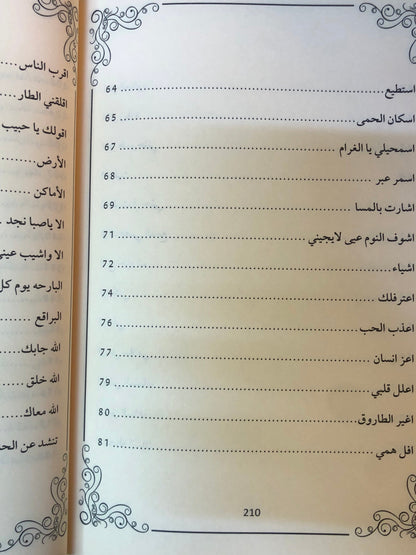 استطيع ........ 64
اسكان الحمى ........ 65
اسمحيلي يا الغرام ........ 67
اسمر عبر ........ 68
اشارت بالمسا ........ 69
اشوف النوم عيى لايجيني ........ 71
اشياء ........ 72
اعترفلك ........ 74
اعذب الحب ........ 76
اعز انسان ........ 77
اعلل قلبي ........ 79
اغير الطاروق ........ 80
افل همي ........ 81
210
اقرب الناس ........
اقلقني الطار ........
اقولك يا حبيب
الأرض ........
الأماكن ........
الا ياصبا نجد
الا واشيب عيني
البارحه يوم
البراقع ........
الله جابك ........
الله خلق ........
الله معاك ........
ننشد عن